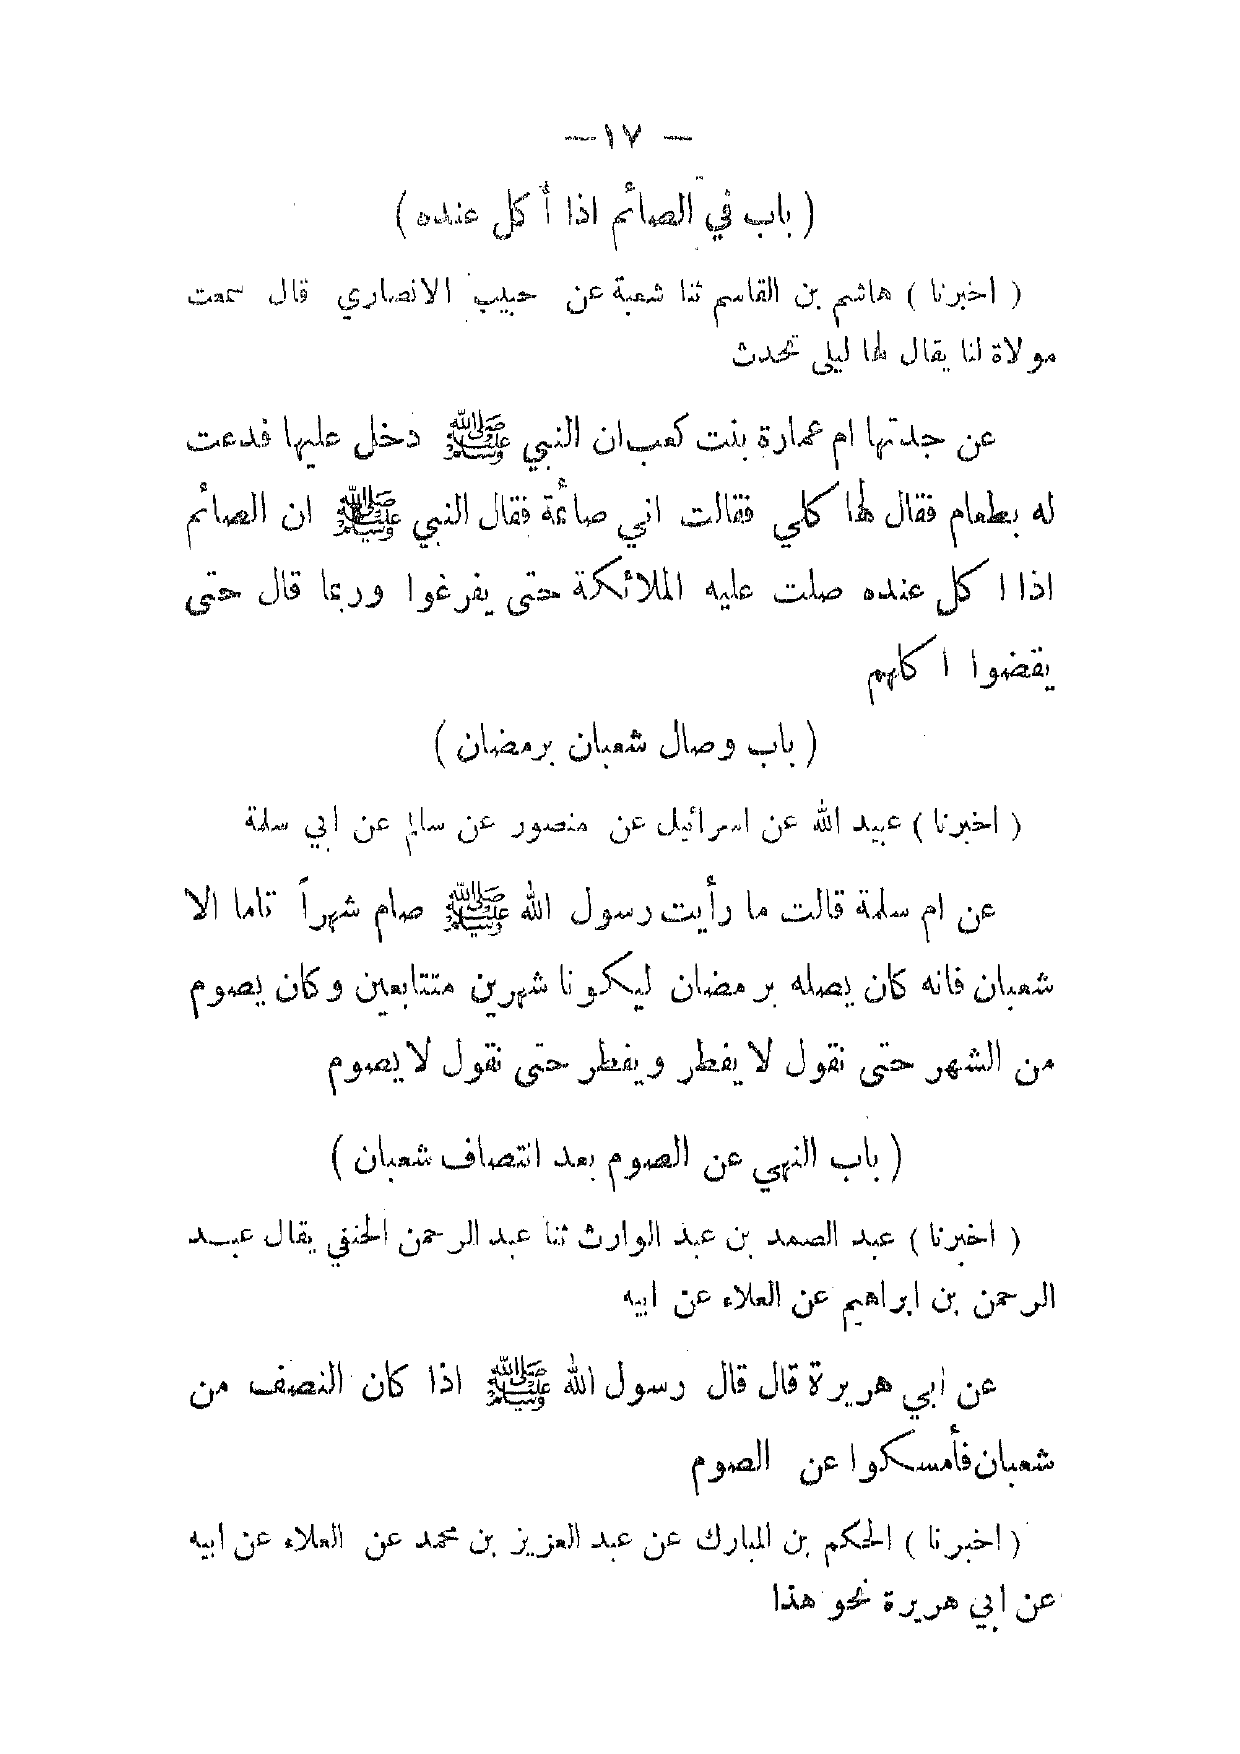 — ١٧ —
( باب في الصائم اذا أكل عنده )
( اخبرنا ) هاشم بن القاسم ثنا شعبة عن حبيب الانصاري قال سمعت
مولاة لنا يقال لها ليلى تحدث
عن جدتها ام عمارة بنت كعب ان النبي ﷺ دخل عليها فدعت
له بطعام فقال لها كلي فقالت اني صائمة فقال النبي ﷺ ان الصائم
اذا اكل عنده صلت عليه الملائكة حتى يفرغوا وربما قال حتى
يقضوا اكلهم
( باب وصال شعبان برمضان )
( اخبرنا ) عبيد الله عن اسرائيل عن منصور عن سالم عن ابي سلمة
عن ام سلمة قالت ما رأيت رسول الله ﷺ صام شهراً تاما الا
شعبان فانه كان يصله برمضان ليكونا شهرين متتابعين وكان يصوم
من الشهر حتى نقول لا يفطر ويفطر حتى نقول لا يصوم
( باب النهي عن الصوم بعد انتصاف شعبان )
( اخبرنا ) عبد الصمد بن عبد الوارث ثنا عبد الرحمن الحنفي يقال عبد
الرحمن بن ابراهيم عن العلاء عن ابيه
عن ابي هريرة قال قال رسول الله ﷺ اذا كان النصف من
شعبان فأمسكوا عن الصوم
( اخبرنا ) الحكم بن المبارك عن عبد العزيز بن محمد عن العلاء عن ابيه
عن ابي هريرة نحو هذا